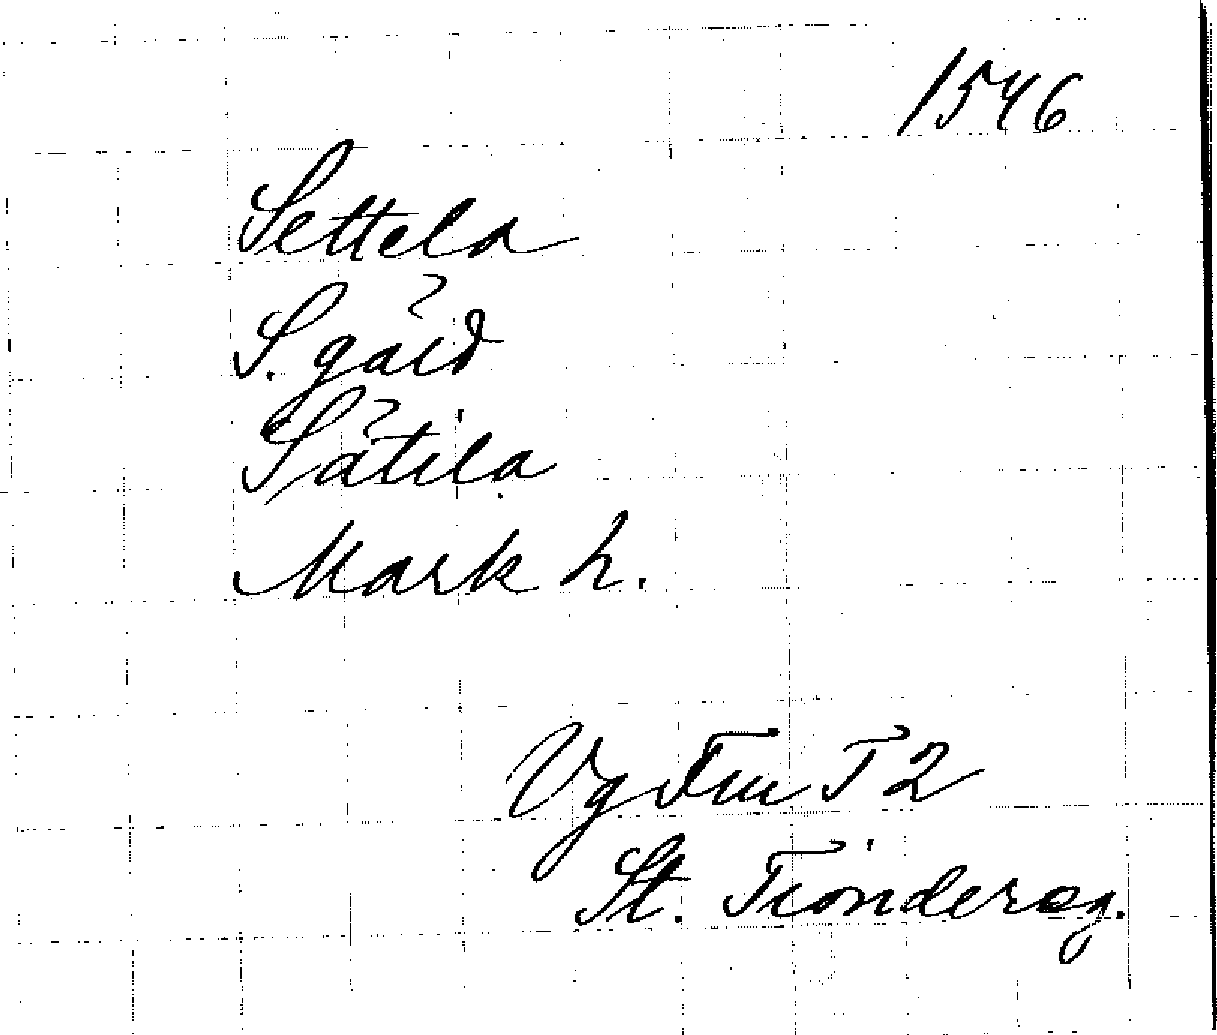 1546
Settela
S. gård
Sätila
Mark h.
Vg Fru T 2
St. Tiondereg.